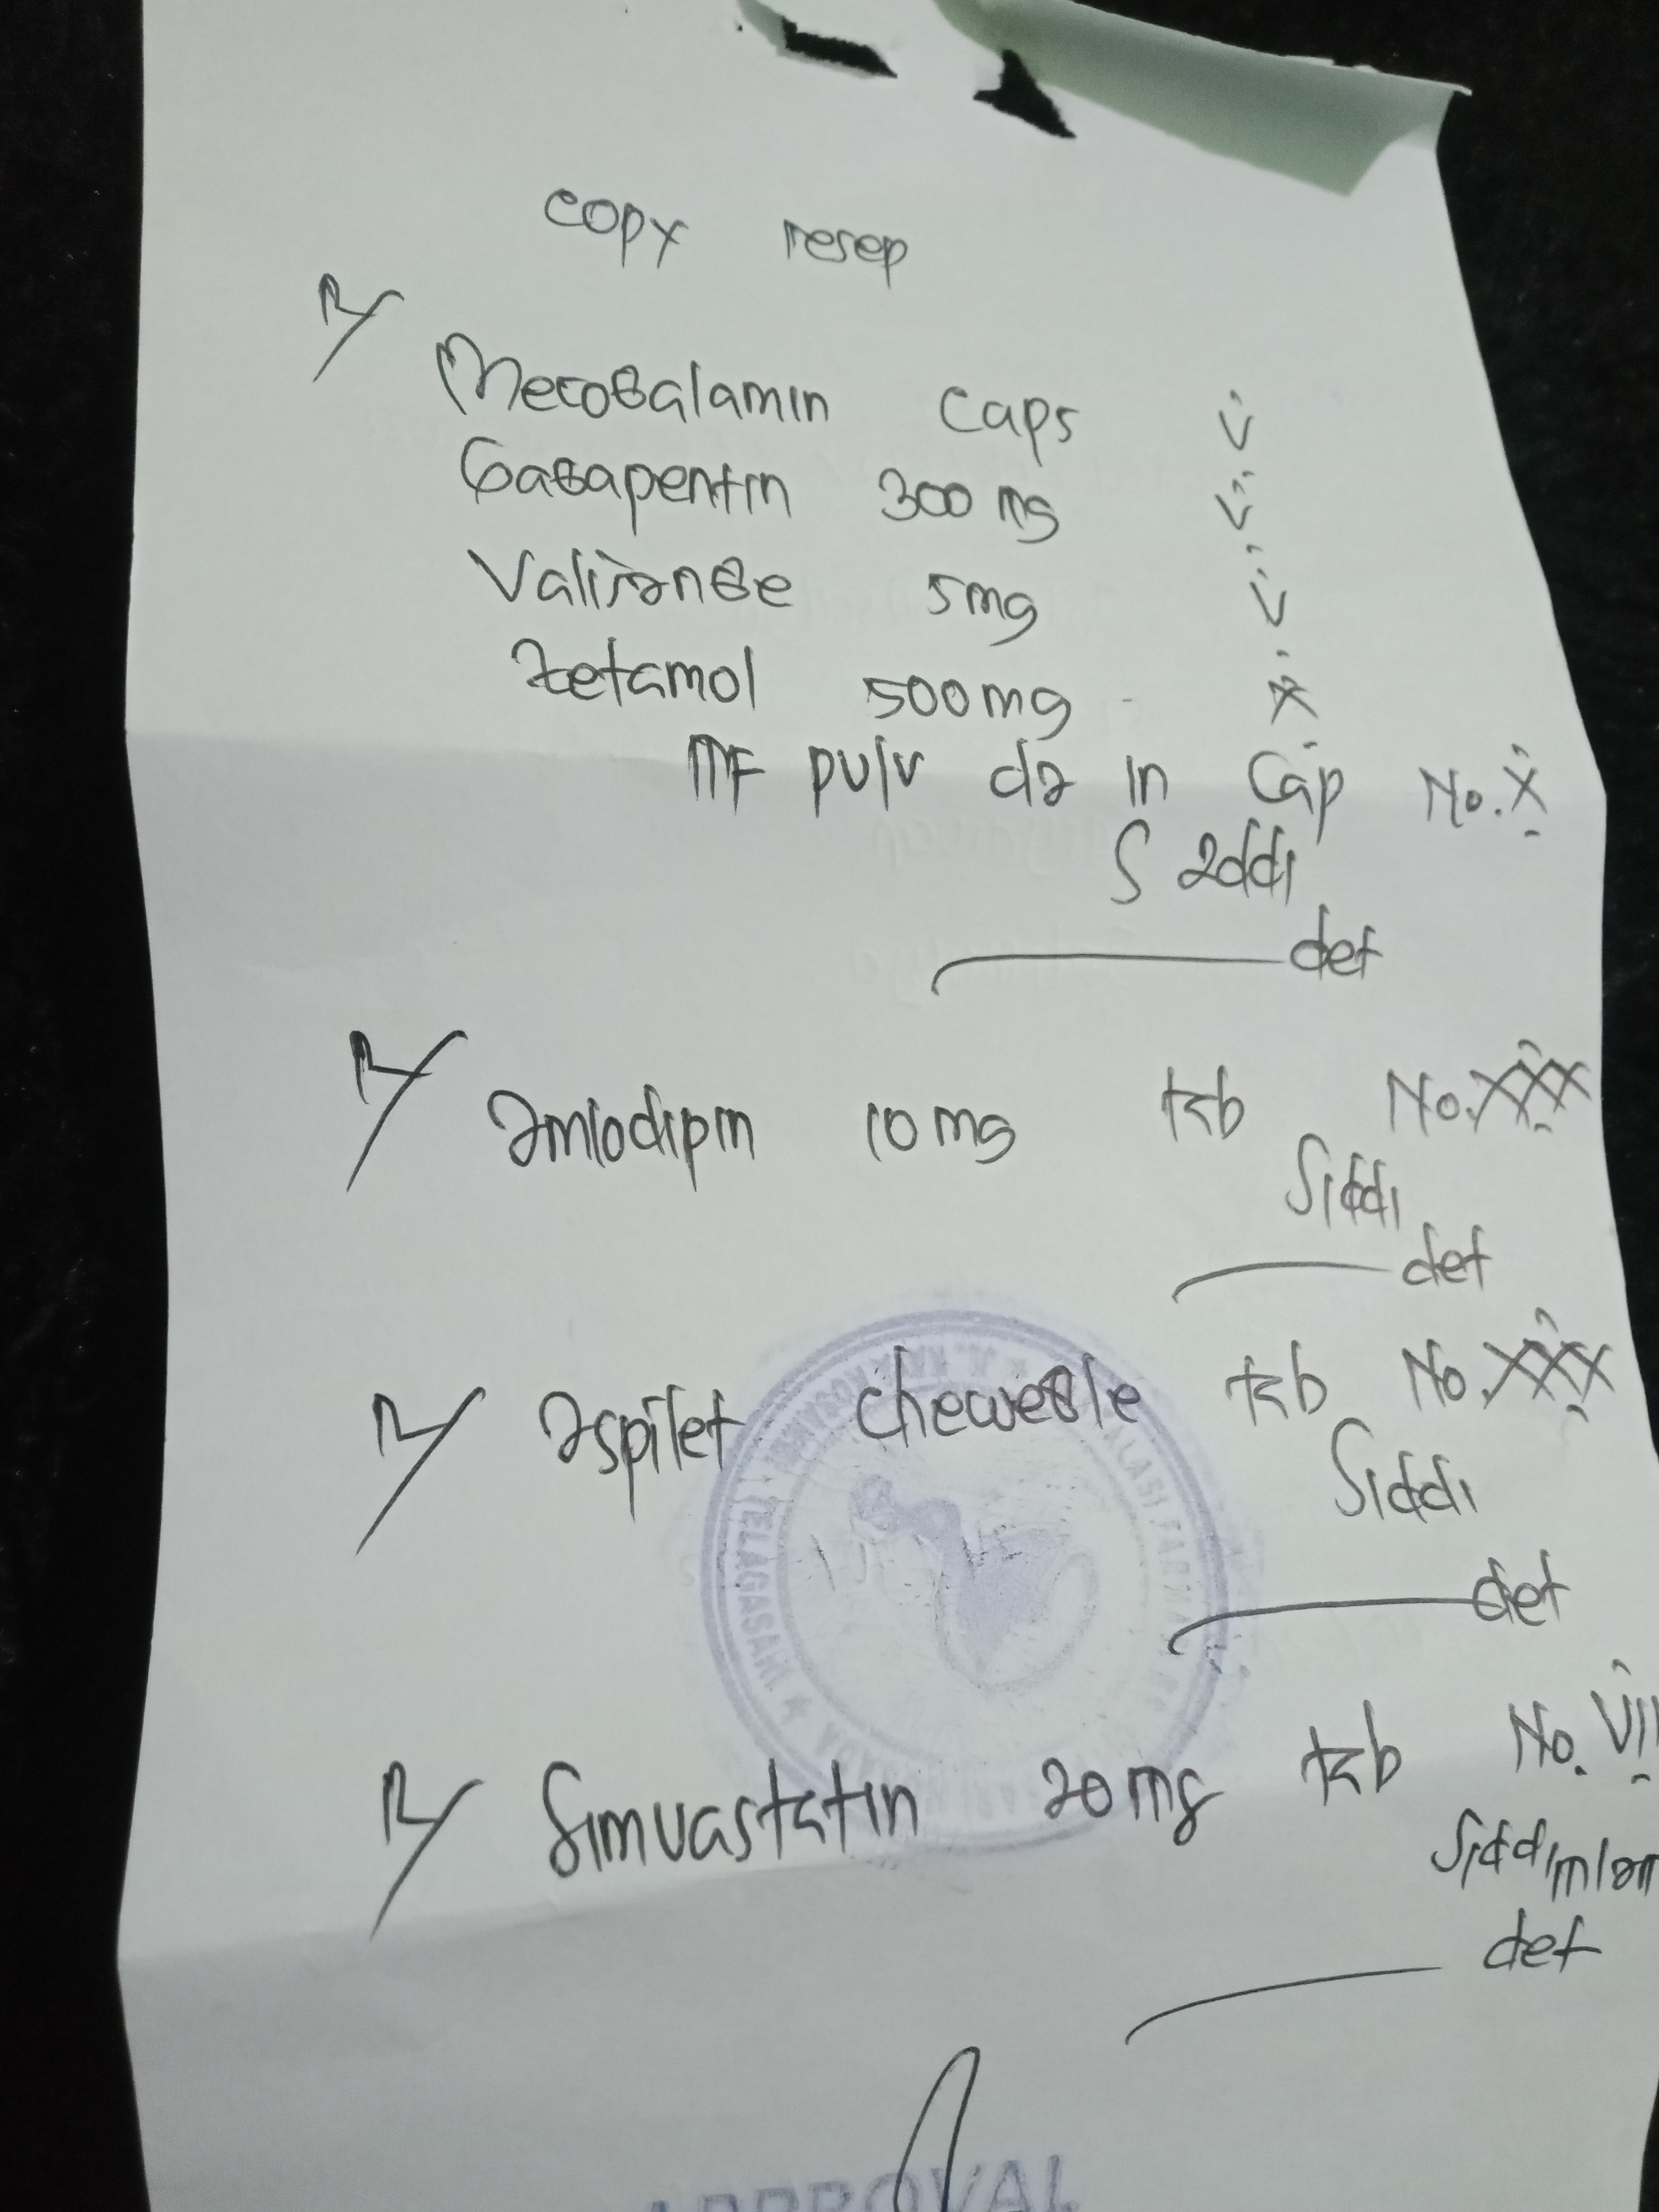 copy resep
R/ Mecobalamin caps V
Gabapentin 300 mg V
Valisanbe 5mg V
Zetamol 500mg X
MF pulv da in Cap No. X
S 2dd1
det
R/ Amlodipin 10 mg tab No. XXX
S1dd1
det
R/ Aspilet cheweble tab No. XXX
S1dd1
det
TELAGASARI
R/ Simvastatin 20 mg tab No. VII
S1dd1 mlam
det
APPROVAL